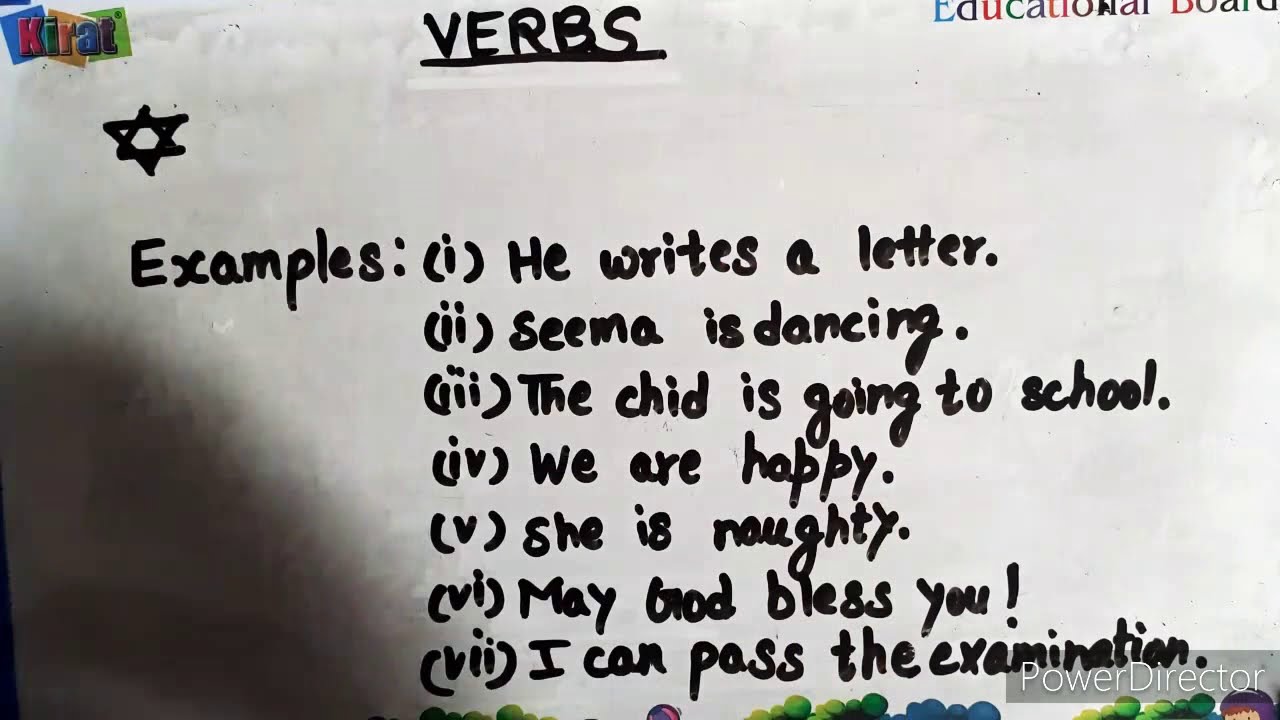 Kirat
Educational Board
VERBS
Examples: (i) He writes a letter.
(ii) Seema is dancing.
(iii) The chid is going to school.
(iv) We are happy.
(v) She is naughty.
(vi) May God bless you!
(vii) I can pass the examination.
PowerDirector